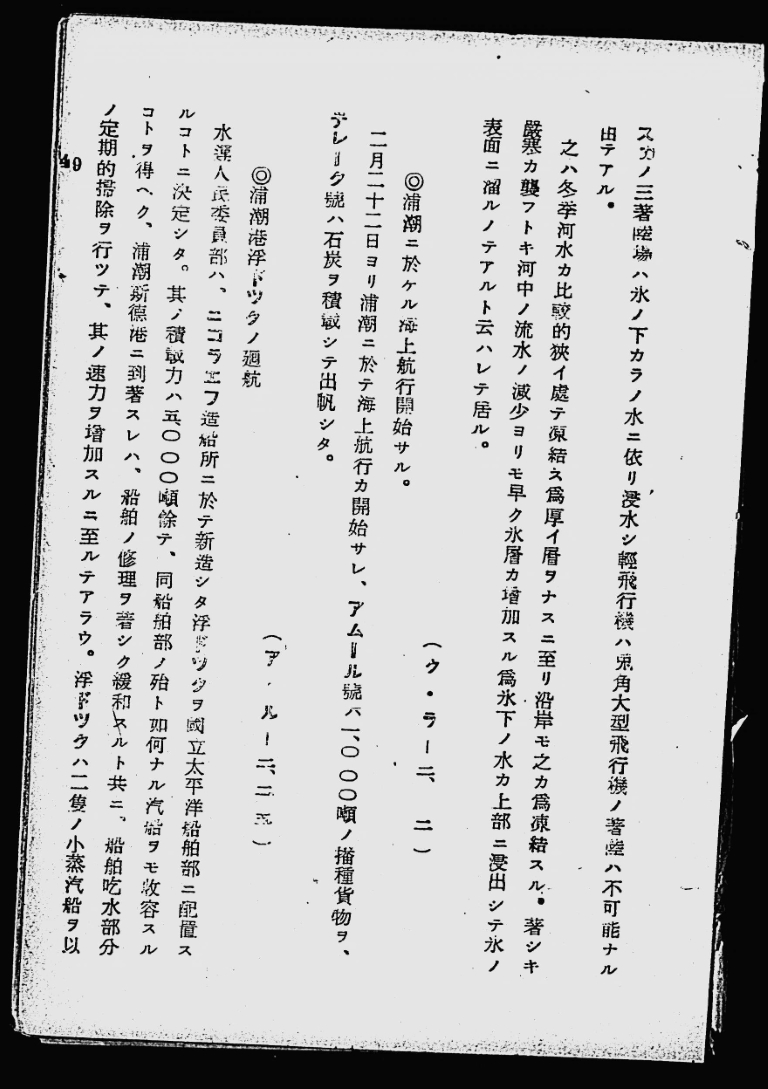 スカノ三著陸場ハ氷ノ下カラノ水ニ依リ浸水シ輕飛行機ハ兎角大型飛行機ノ著陸ハ不可能ナル
由テアル。
之ハ冬季河水カ比較的狹イ處テ凍結ス爲厚イ層ヲナスニ至リ沿岸モ之カ爲凍結スル。著シキ
嚴寒カ襲フトキ河中ノ流水ノ減少ヨリモ早ク氷層カ増加スル爲氷下ノ水カ上部ニ浸出シテ氷ノ
表面ニ溜ルノテアルト云ハレテ居ル。
◎浦潮ニ於ケル海上航行開始サル。
(ウ・ラー二、二一)
二月二十二日ヨリ浦潮ニ於テ海上航行カ開始サレ、アムール號ハ一、〇〇〇噸ノ播種貨物ヲ、
デレーク號ハ石炭ヲ積載シテ出帆シタ。
◎浦潮港浮ドツクノ廻航
(ア・ルー二、二五)
水運人民委員部ハ、ニコラエフ造船所ニ於テ新造シタ浮ドツクヲ國立太平洋船舶部ニ配置ス
ルコトニ決定シタ。其ノ積載力ハ五〇〇〇噸餘テ、同船舶部ノ殆ト如何ナル汽船ヲモ收容スル
コトヲ得ヘク、浦潮斯德港ニ到著スレハ、船舶ノ修理ヲ著シク緩和スルト共ニ、船舶吃水部分
ノ定期的掃除ヲ行ツテ、其ノ速力ヲ増加スルニ至ルテアラウ。浮ドツクハ二隻ノ小蒸汽船ヲ以
49